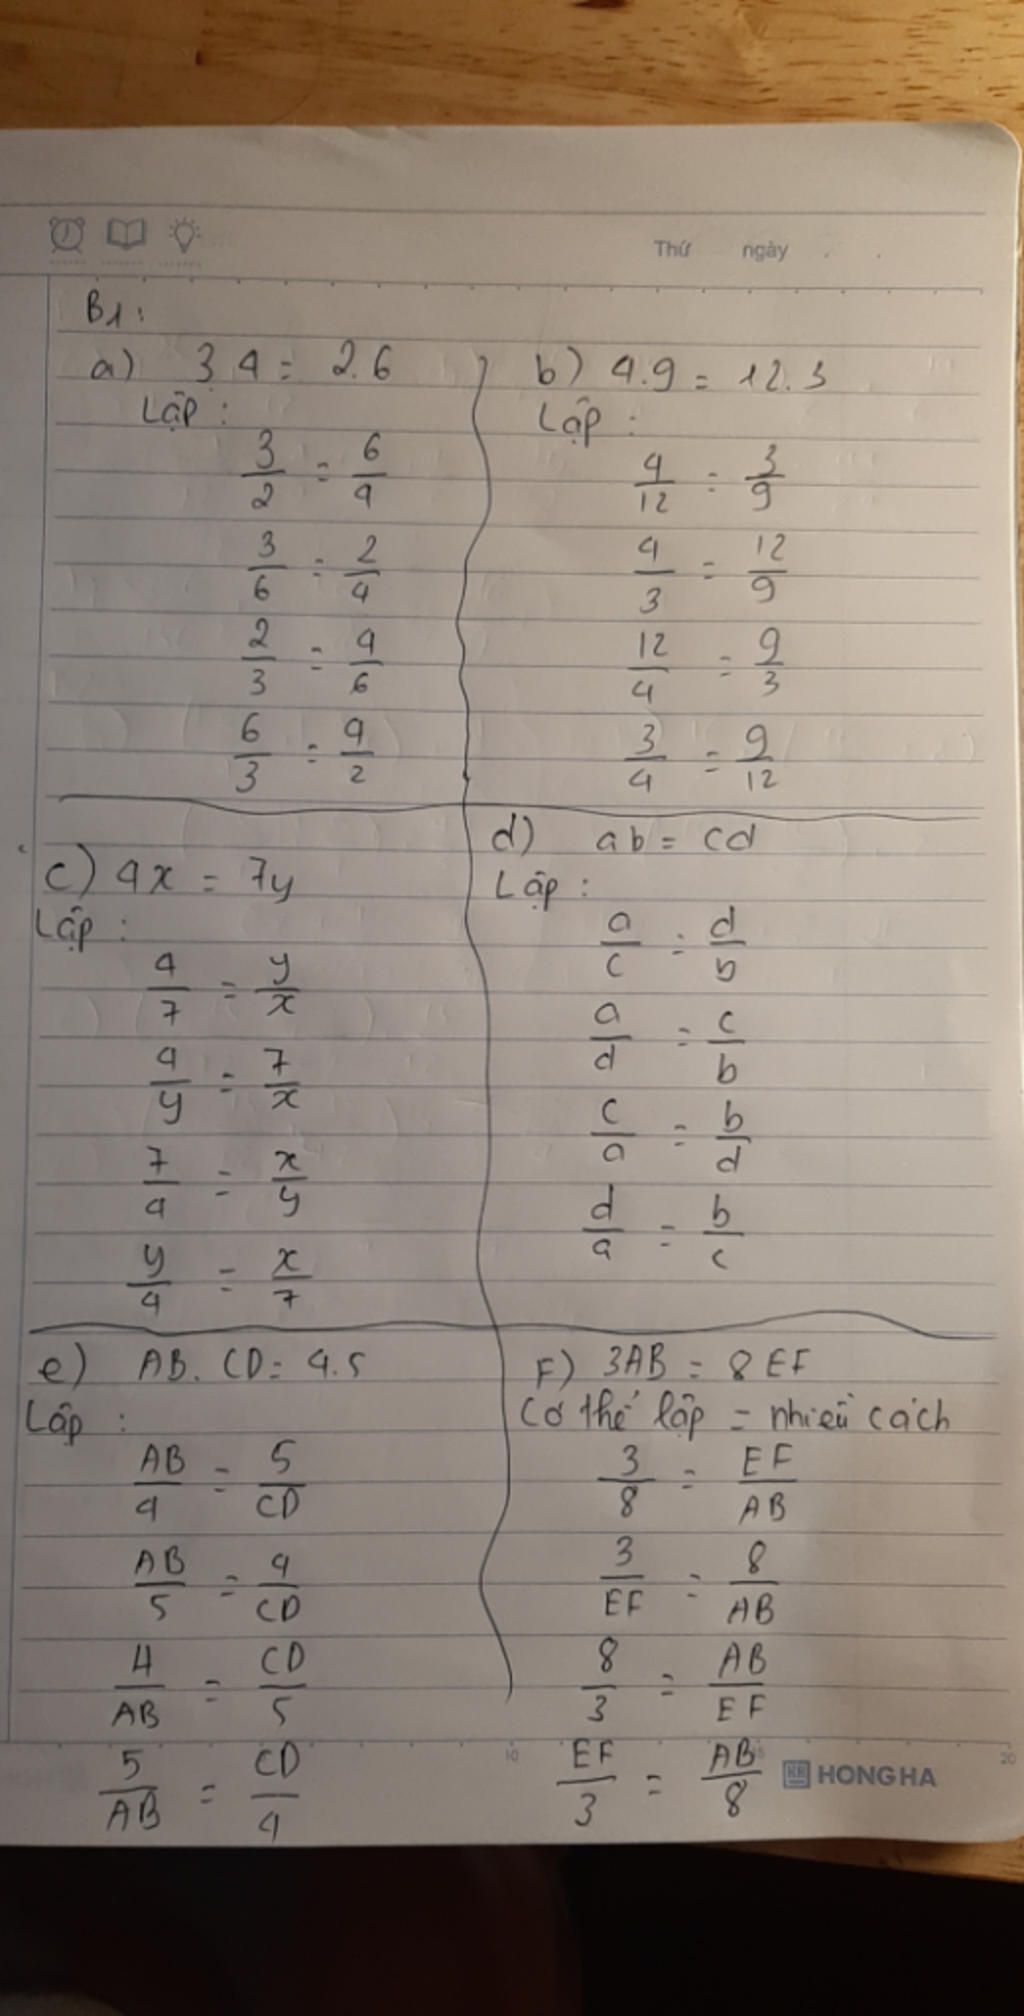 Thứ ngày
B1:
a) 3.4 = 2.6
Lập:
3/2 = 6/4
3/6 = 2/4
2/3 = 4/6
6/3 = 4/2
b) 4.9 = 12.3
Lập:
4/12 = 3/9
4/3 = 12/9
12/4 = 9/3
3/4 = 9/12
c) 4x = 7y
Lập:
4/7 = y/x
4/y = 7/x
7/4 = x/y
y/4 = x/7
d) ab = cd
Lập:
a/c = d/b
a/d = c/b
c/a = b/d
d/a = b/c
e) AB. CD = 4.5
Lập:
AB/4 = 5/CD
AB/5 = 4/CD
4/AB = CD/5
5/AB = CD/4
F) 3AB = 8EF
Có thể lập = nhiều cách
3/8 = EF/AB
3/EF = 8/AB
8/3 = AB/EF
EF/3 = AB/8
10
20
HONG HA